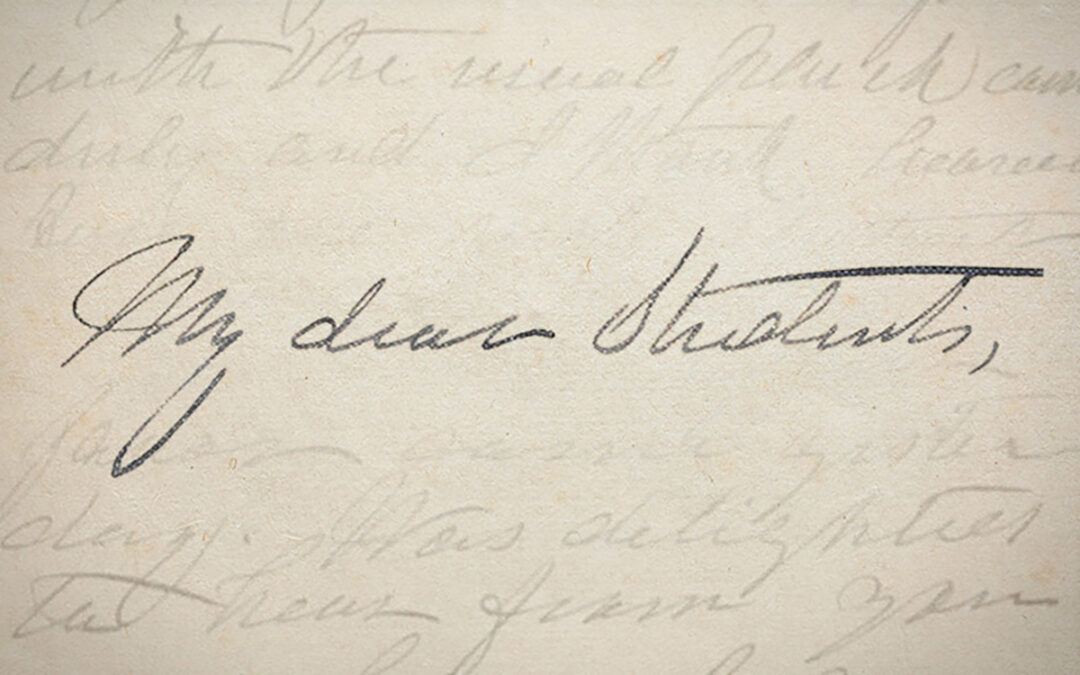 with the usual punch cam
duly and I thank
My dear Students,
came yester
day. Was delighted
to hear from you